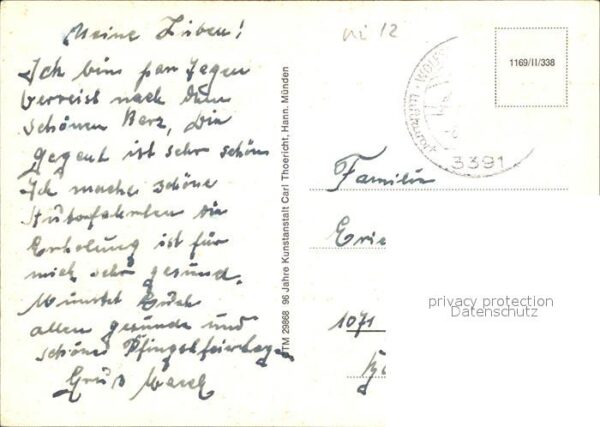 Meine Lieben!
Ich bin paar Tagen
verreist nach dem
schönen Harz, Die
Gegent ist sehr schön
Ich mache schöne
Autofahrten die
Erholung ist für
mich sehr gesund.
Wünscht Euch
allen gesunde und
schönes Pfingstfeiertagen
Gruß
TTM 29868 96 Jahre Kunstanstalt Carl Thoericht, Hann. Münden
3391
1169/II/338
Familie
1071
privacy protection
Datenschutz